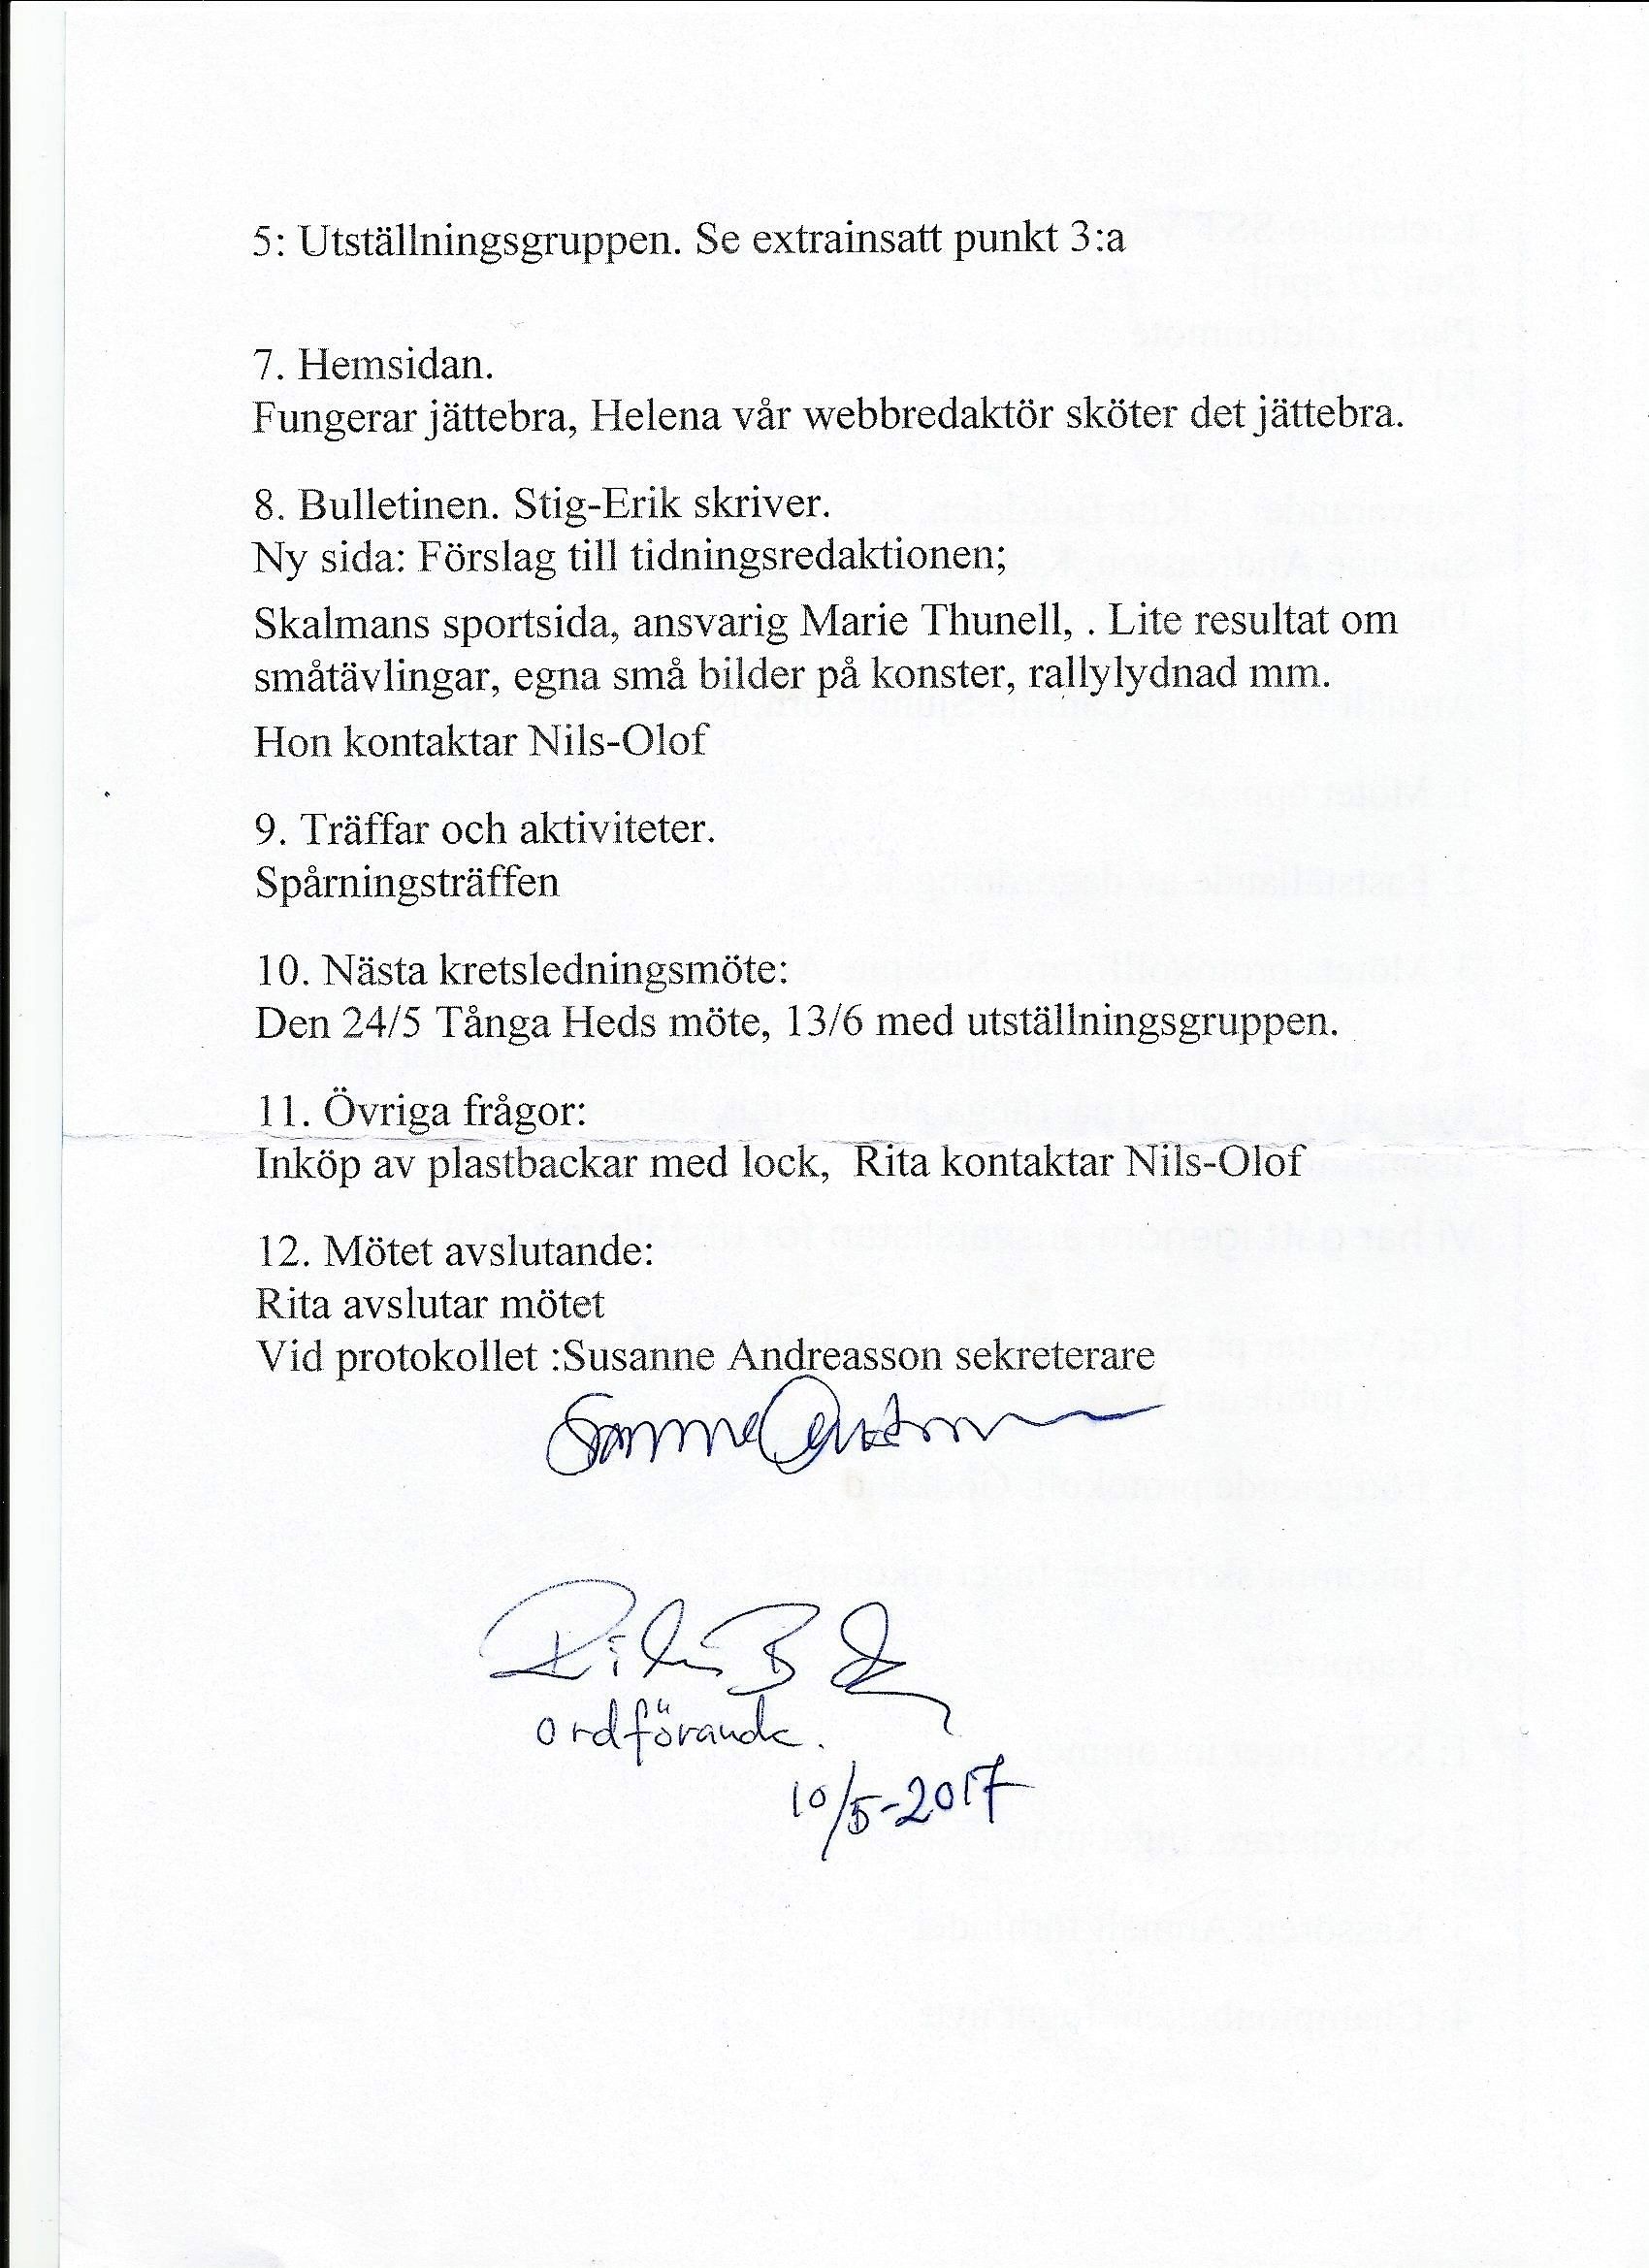 5: Utställningsgruppen. Se extrainsatt punkt 3:a
7. Hemsidan.
Fungerar jättebra, Helena vår webbredaktör sköter det jättebra.
8. Bulletinen. Stig-Erik skriver.
Ny sida: Förslag till tidningsredaktionen;
Skalmans sportsida, ansvarig Marie Thunell, . Lite resultat om
småtävlingar, egna små bilder på konster, rallylydnad mm.
Hon kontaktar Nils-Olof
9. Träffar och aktiviteter.
Spårningsträffen
10. Nästa kretsledningsmöte:
Den 24/5 Tånga Heds möte, 13/6 med utställningsgruppen.
11. Övriga frågor:
Inköp av plastbackar med lock, Rita kontaktar Nils-Olof
12. Mötet avslutande:
Rita avslutar mötet
Vid protokollet :Susanne Andreasson sekreterare
ordförande.
10/5-2017